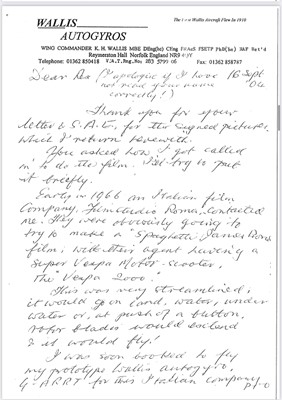 WALLIS
AUTOGYROS
The first Wallis Aircraft Flew In 1910
WING COMMANDER K. H. WALLIS MBE DEng(hc) CEng FRAeS FSETP PhD(hc) RAF Ret'd
Reymerston Hall Norfolk England NR9 4QY
Telephone: 01362 850418 V.A.T. Reg. No: 283 5799 06 Fax: 01362 858747
Dear (I apologise if I have 16 Sept
not read your name 04
correctly!)
Thank you for your
letter & S.A.E., for the signed pictures,
which I return herewith.
You asked how I 'got called
in' to do the film. I'll try to put
it briefly.
Early in 1966 an Italian film
Company, Roma, contacted
me. They were obviously going to
try to make a "Spaghetti James Bond"
film, with their agent having a
Super Vespa Motor-scooter,
"The Vespa 2000."
This was very streamlined,
it would go on land, water, under
water or, at push of a button,
rotor blades would extend
& it would fly!
I was soon booked to fly
my prototype Wallis autogyro,
G-ARRT for this Italian company
P.T.O